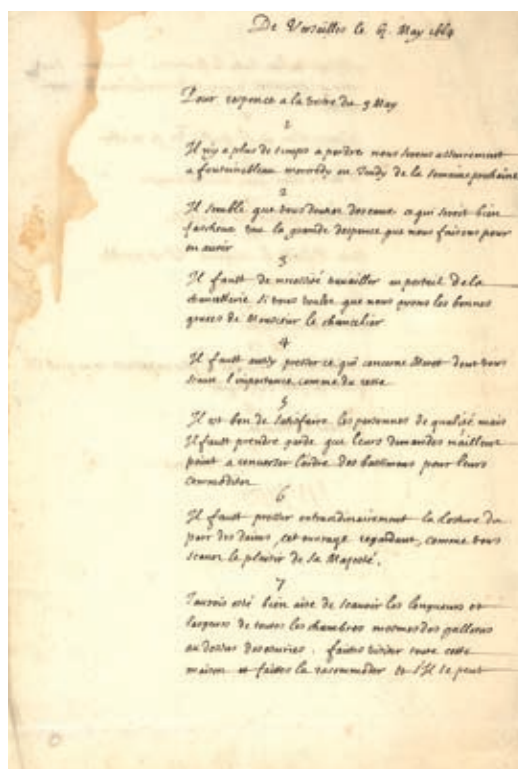 De Versailles le 6. May 1664
Pour responce a la vostre du 3 May
1
Il n'y a plus de temps a perdre nous serons asseurement
a fontainebleau mercredy ou Jeudy de la semaine prochaine
2
Il semble que vous doutez des eaux ce qui seroit bien
fascheux veu la grande despence que nous faisons pour
en avoir
3
Il fault de necessité travailler au portail de la
chancellerie si vous voulez que nous ayons les bonnes
graces de Monsieur le chancelier
4
Il fault aussy presser ce qui concerne Moret dont vous
scavez l'importance, comme du reste
5
Il est bon de satisfaire les personnes de qualité mais
Il fault prendre garde que leurs demandes n'aillent
point a renverser l'ordre des bastimens pour leurs
commoditez
6
Il fault presser extraordinairement la closture du
parc des daims, cet ouvrage regardant, comme vous
scavez le plaisir de sa Majesté.
7
J'aurois esté bien aise de scavoir les longueurs et
largeurs de toutes les chambres mesmes des galletas
au dessus des escuries. faites visiter toute cette
maison et faites la racommoder et s'Il se peut